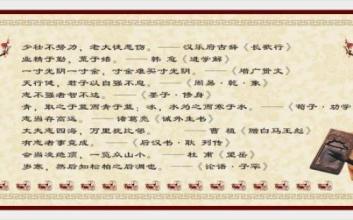 少壮不努力，老大徒悲伤。——汉乐府古辞《长歌行》
业精于勤，荒于嬉。——韩愈《进学解》
一寸光阴一寸金，寸金难买寸光阴。——《增广贤文》
天行健，君子以自强不息。——《周易·乾·象》
志不强者智不达。——《墨子·修身》
青，取之于蓝而青于蓝；冰，水为之而寒于水。——《荀子·劝学》
志当存高远。——诸葛亮《诫外生书》
丈夫志四海，万里犹比邻。——曹植《赠白马王彪》
有志者事竟成。——《后汉书·耿 列传》
会当凌绝顶，一览众山小。——杜甫《望岳》
岁寒，然后知松柏之后凋也。——《论语·子罕》